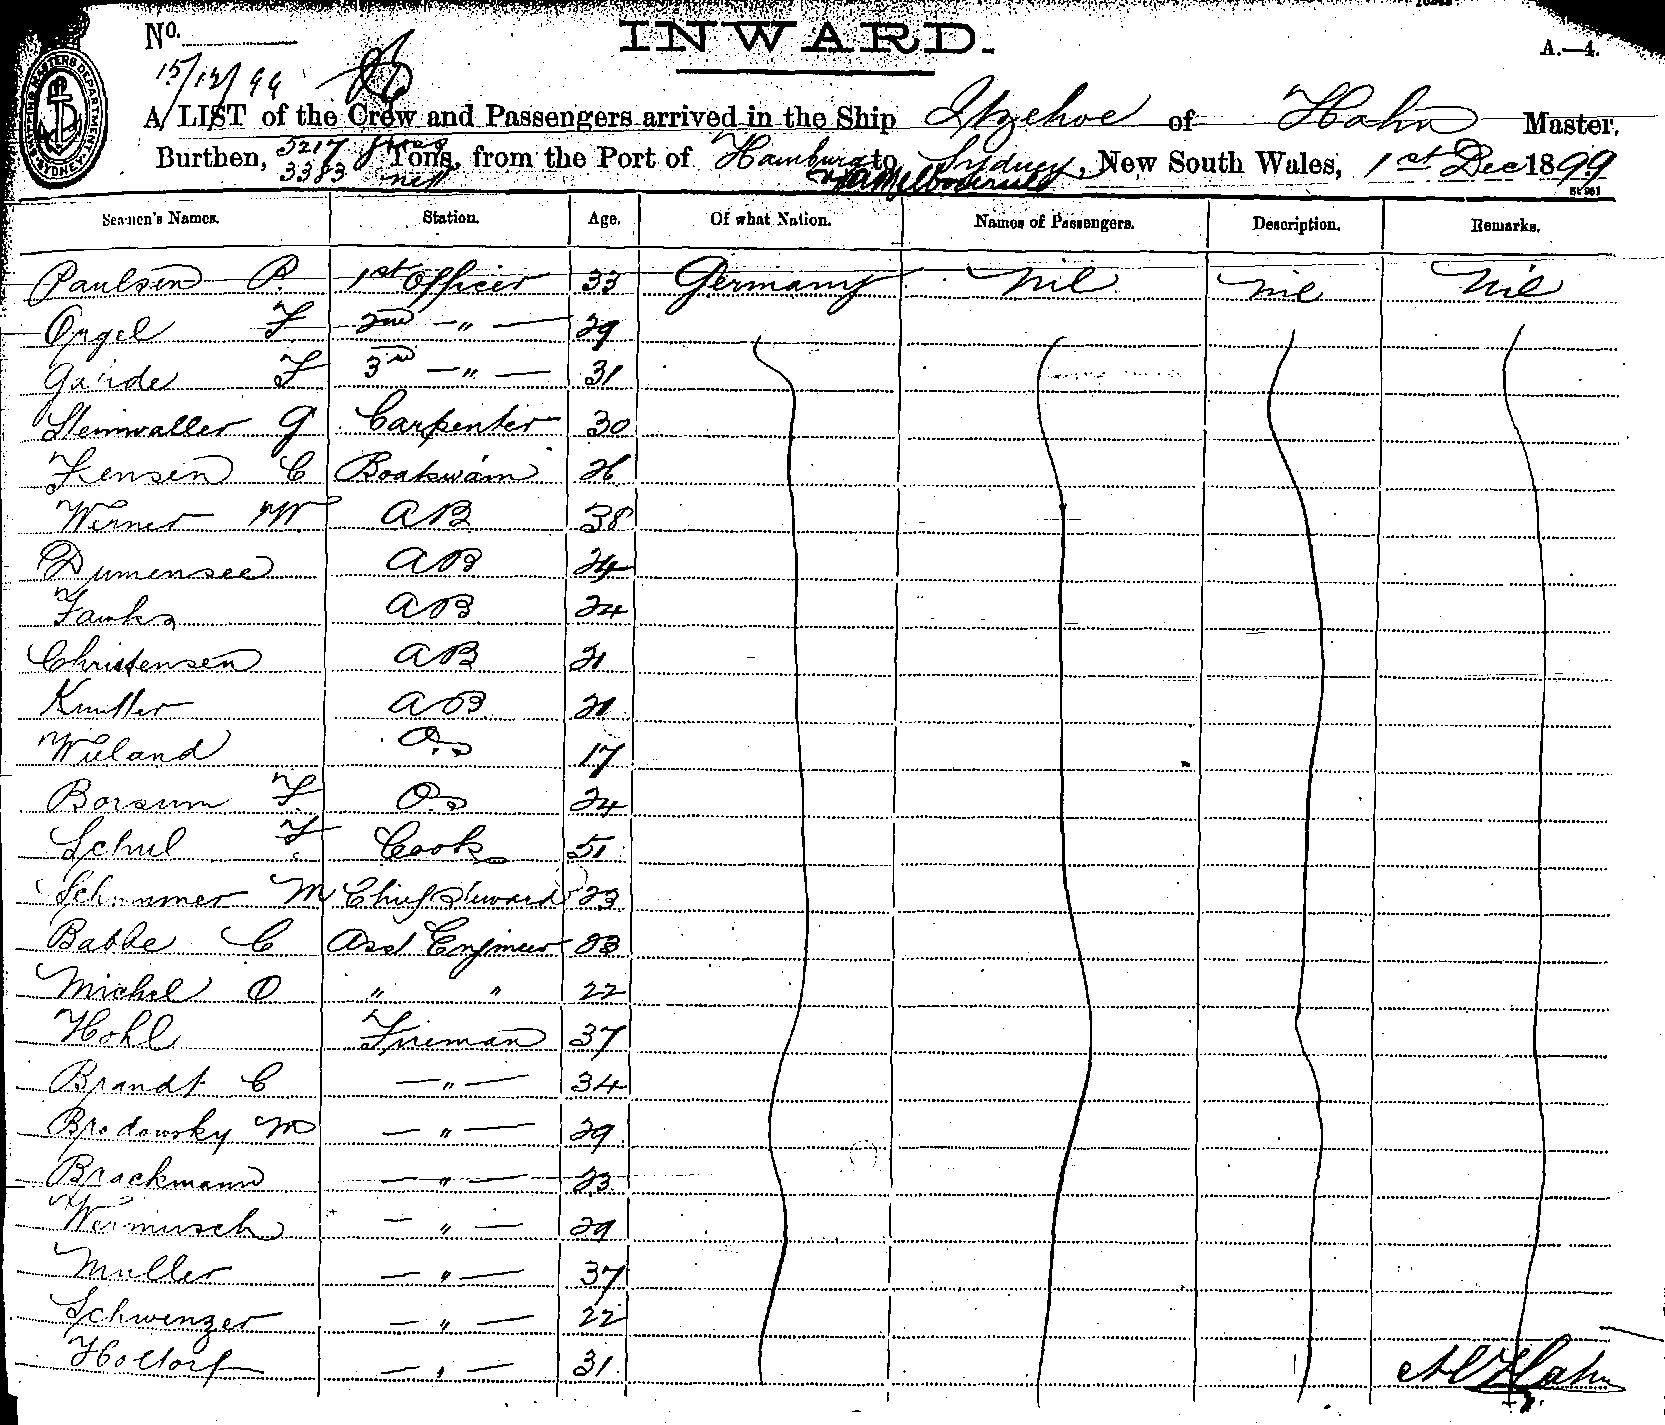 No.
INWARD.
A.—4.
15/12/99
A LIST of the Crew and Passengers arrived in the Ship Itzehoe of Hahn Master,
Burthen, 5217 gross 3383 nett Tons, from the Port of Hamburg to Sydney, New South Wales, 1st Dec 1899
via Melbourne
Seamen's Names. Station. Age. Of what Nation. Names of Passengers. Description. Remarks.
Paulsen P. 1st Officer 33 Germany nil nil nil
Orgel F 2nd — " — 29
F 3rd — " — 31
Steinwaller G Carpenter 30
Jensen C Boatswain 26
Werner W AB 38
Dumensee AB 24
AB 24
Christensen AB 21
AB 21
Wieland O.S 17
Borsum F. O.S 24
Schul F. Cook 51
M Chief Steward 23
Babbe C Asst Engineer 23
Michel O " " 22
Hohl Fireman 37
Brandt C — " — 34
Brodowsky M — " — 29
Brackmann — " — 23
Wermusch — " — 29
Muller — " — 37
Schwenzer — " — 22
Holtorf — " — 31
Hahn